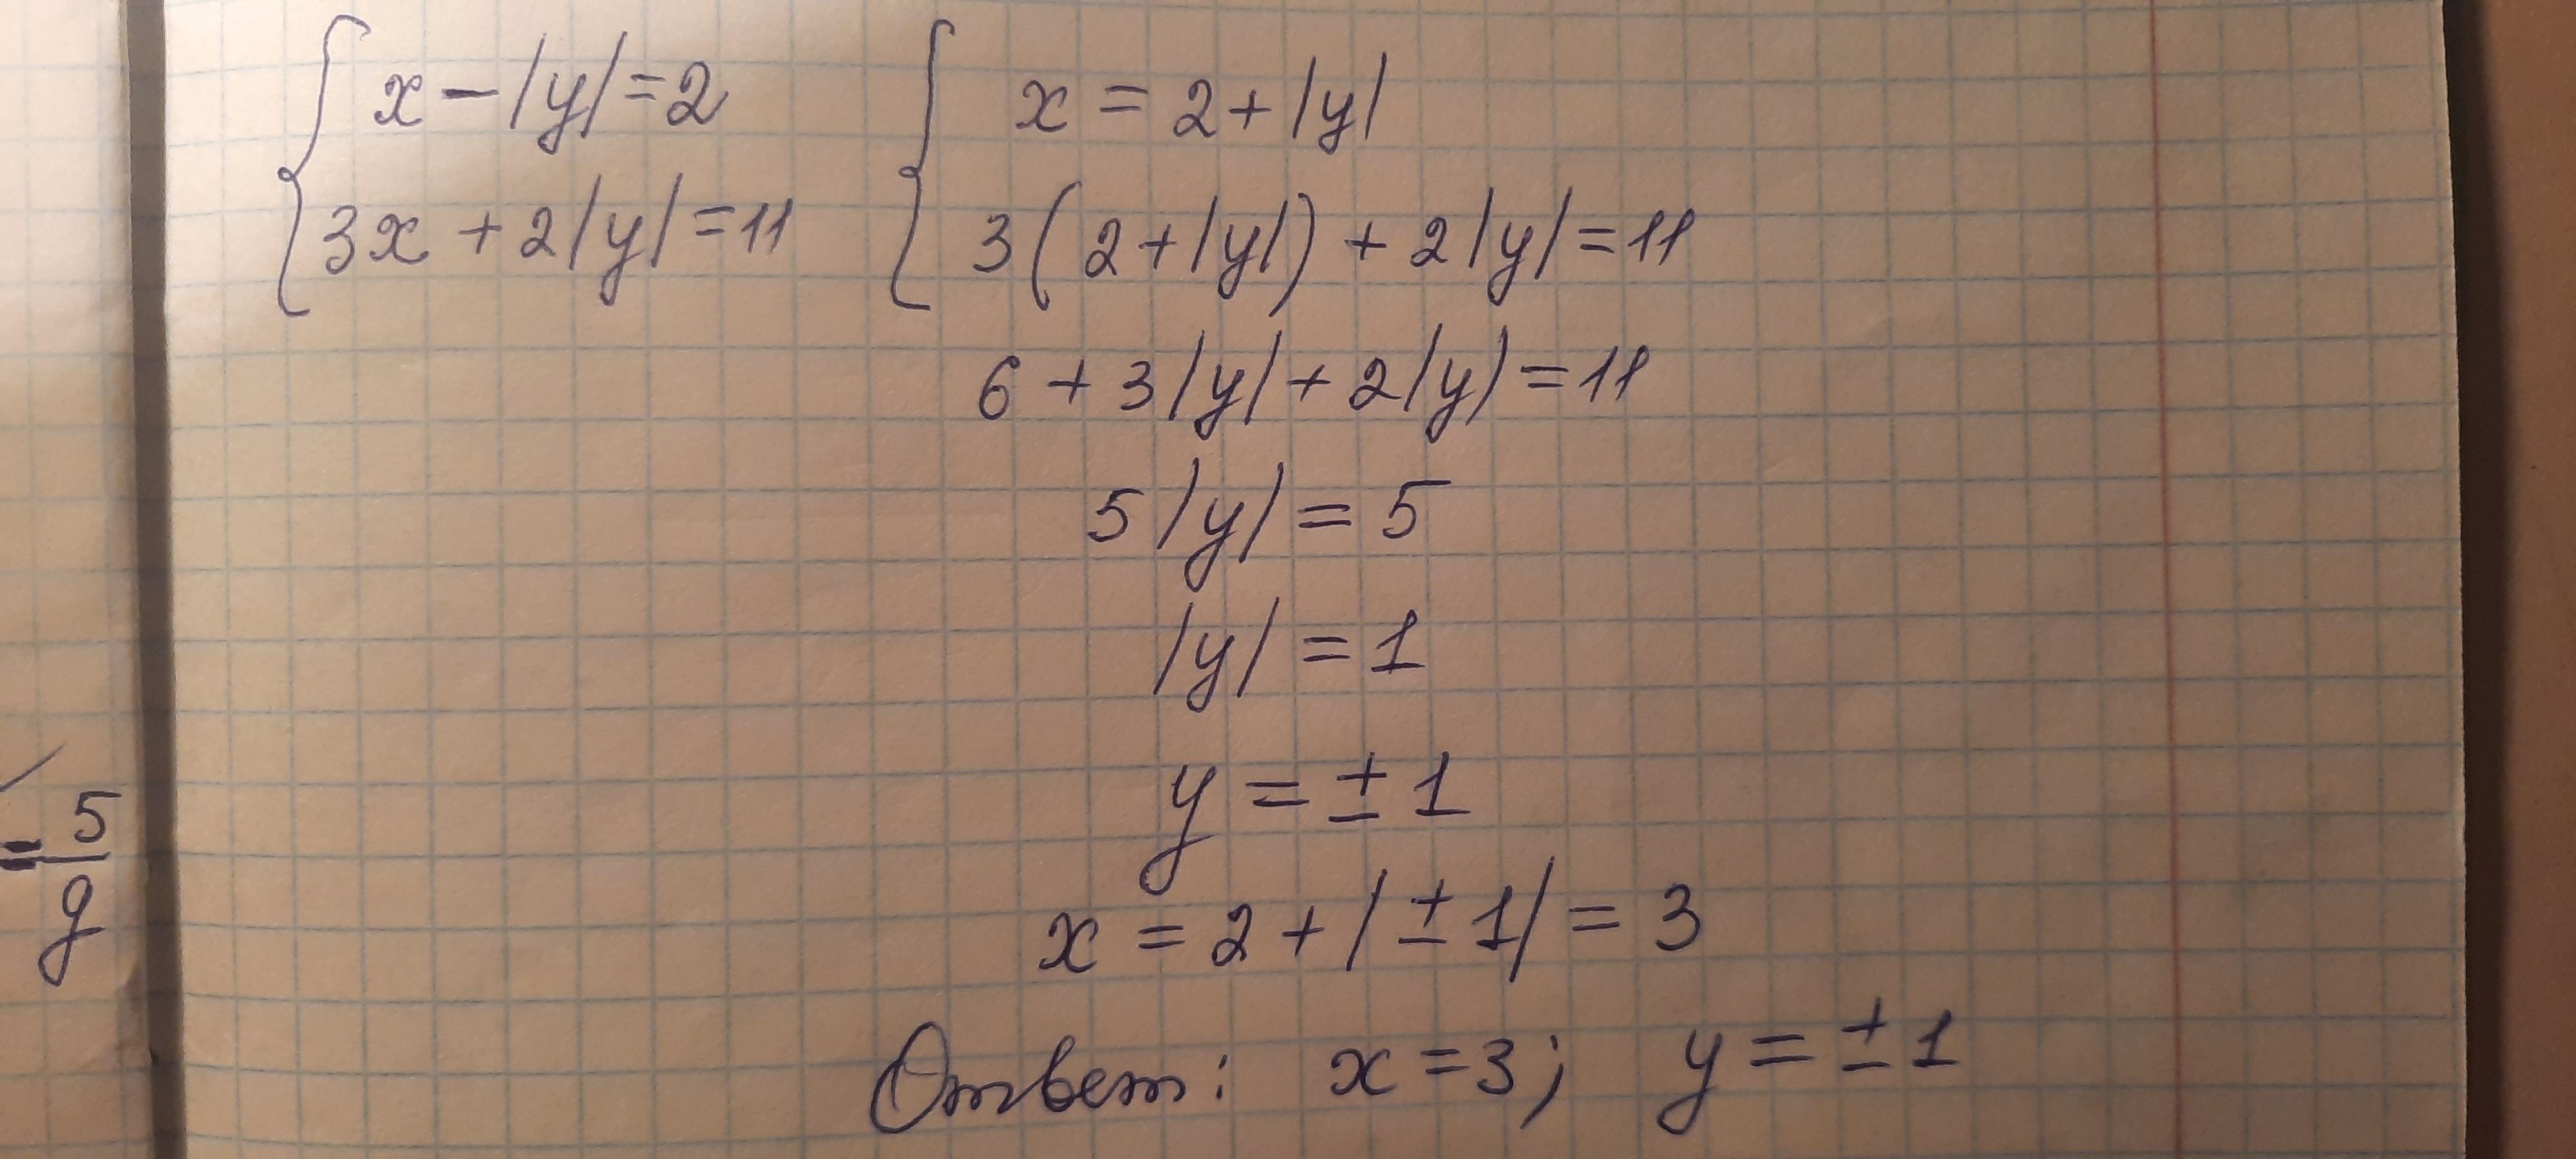 x - |y| = 2
3x + 2|y| = 11
x = 2 + |y|
3(2 + |y|) + 2|y| = 11
6 + 3|y| + 2|y| = 11
5|y| = 5
|y| = 1
y = ± 1
x = 2 + |± 1| = 3
Ответ: x = 3; y = ± 1
= 5/9